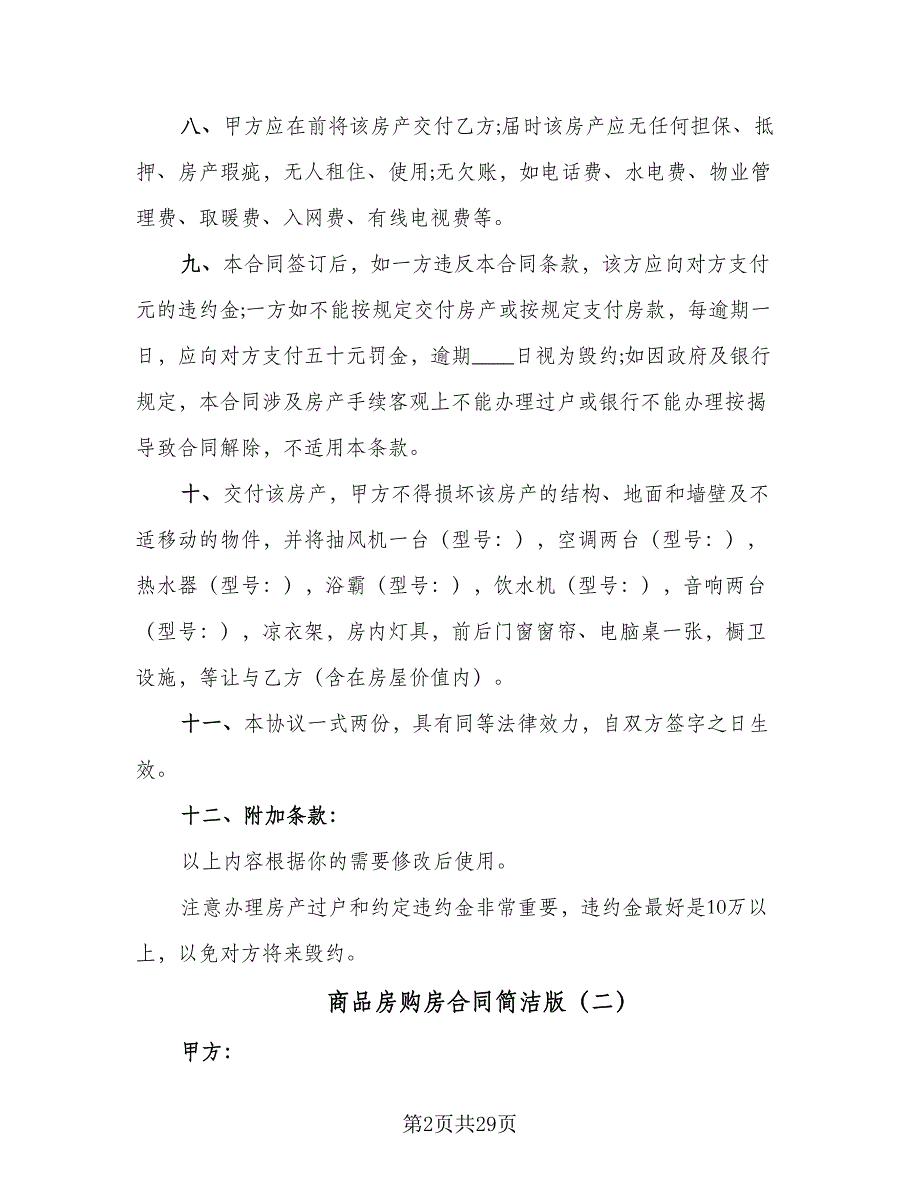 八、甲方应在前将该房产交付乙方;届时该房产应无任何担保、抵
押、房产瑕疵，无人租住、使用;无欠账，如电话费、水电费、物业管
理费、取暖费、入网费、有线电视费等。
九、本合同签订后，如一方违反本合同条款，该方应向对方支付
元的违约金;一方如不能按规定交付房产或按规定支付房款，每逾期一
日，应向对方支付五十元罚金，逾期____日视为毁约;如因政府及银行
规定，本合同涉及房产手续客观上不能办理过户或银行不能办理按揭
导致合同解除，不适用本条款。
十、交付该房产，甲方不得损坏该房产的结构、地面和墙壁及不
适移动的物件，并将抽风机一台（型号：），空调两台（型号：），
热水器（型号：），浴霸（型号：），饮水机（型号：），音响两台
（型号：），凉衣架，房内灯具，前后门窗窗帘、电脑桌一张，橱卫
设施，等让与乙方（含在房屋价值内）。
十一、本协议一式两份，具有同等法律效力，自双方签字之日生
效。
十二、附加条款：
以上内容根据你的需要修改后使用。
注意办理房产过户和约定违约金非常重要，违约金最好是10万以
上，以免对方将来毁约。
商品房购房合同简洁版（二）
甲方：
第2页共29页